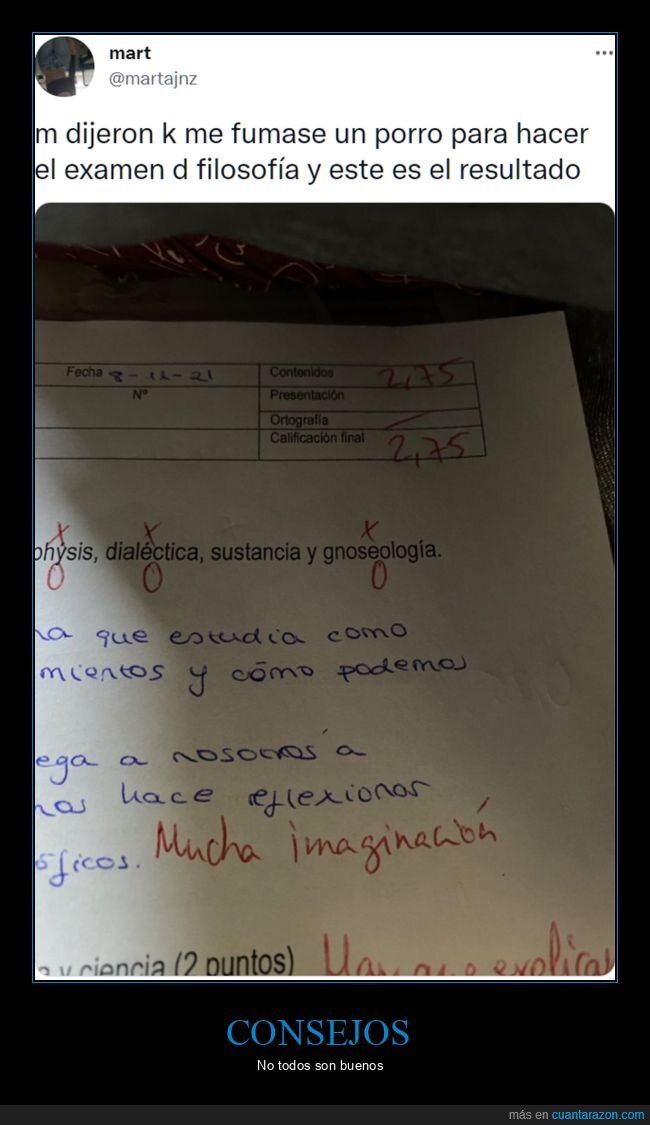 mart
@martajnz
m dijeron k me fumase un porro para hacer
el examen d filosofía y este es el resultado
Fecha 8-11-21 Contenidos 2,75
Nº Presentación
Ortografía
Calificación final 2,75
physis, dialéctica, sustancia y gnoseología.
x x x
0 0 0
que estudia como
mientos y cómo podemos
ega a nosotros a
nos hace reflexionar
óficos. Mucha imaginación
y ciencia (2 puntos) Hay que explicar
CONSEJOS
No todos son buenos
más en cuantarazon.com